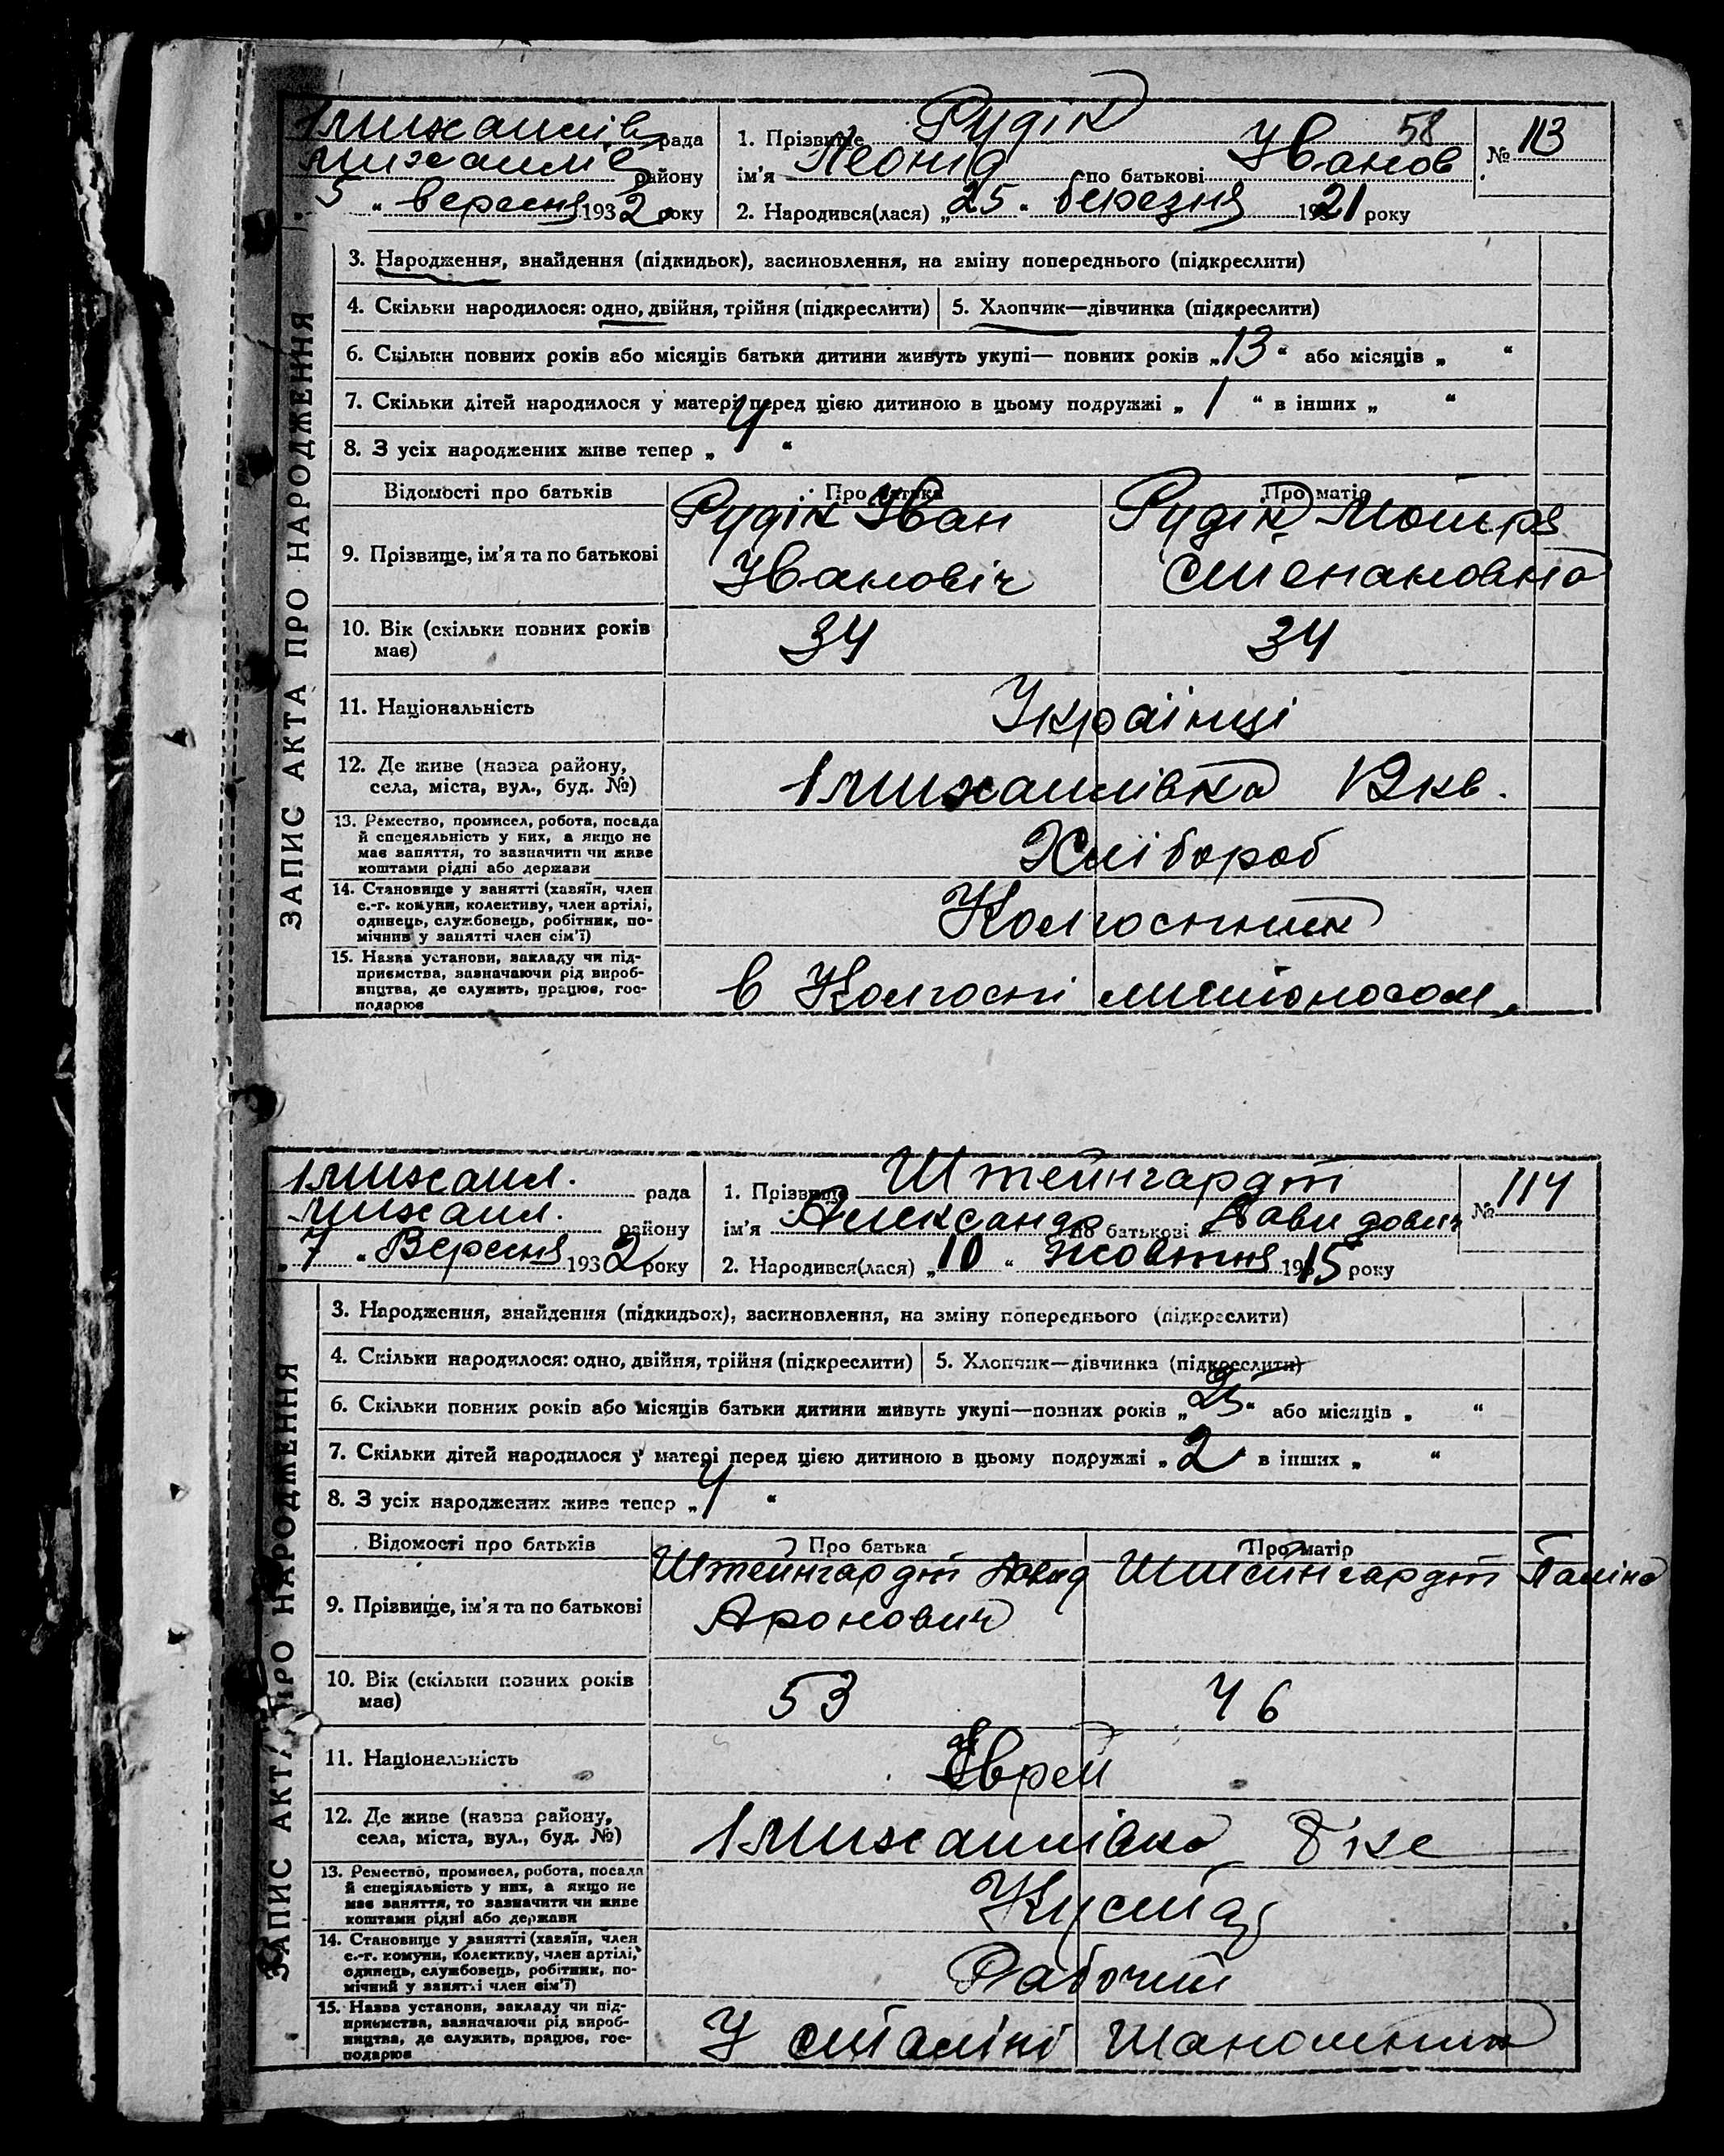 1 михайлів рада
михайлів району
"5" вересня 1932 року
1. Прізвище Рудік
58
ім'я Леонід по батькові Іванов
2. Народився(лася) „25" березня 1921 року
№ 113
ЗАПИС АКТА ПРО НАРОДЖЕННЯ
3. Народження, знайдення (підкидьок), засиновлення, на зміну попереднього (підкреслити)
4. Скільки народилося: одно, двійня, трійня (підкреслити)
5. Хлопчик—дівчинка (підкреслити)
6. Скільки повних років або місяців батьки дитини живуть укупі— повних років „13" або місяців „ "
7. Скільки дітей народилося у матері перед цією дитиною в цьому подружжі „1" в інших „ "
8. З усіх народжених живе тепер „4"
Відомості про батьків
Про батька
Про матір
9. Прізвище, ім'я та по батькові
Рудік Іван
Івановіч
Рудік Мотря
Степановна
10. Вік (скільки повних років
має)
34
34
11. Національність
Українці
12. Де живе (назва району,
села, міста, вул., буд. №)
1 михайлівка 12 кв.
13. Ремество, промисел, робота, посада
й спецеяльність у них, а якщо не
має заняття, то зазначити чи живе
коштами рідні або держави
Хлібороб
14. Становище у занятті (хазяїн, член
с.-г. комуни, колективу, член артілі,
одинець, службовець, робітник, по-
мічник у занятті член сім'ї)
Колгоспник
15. Назва установи, закладу чи під-
приємства, зазначаючи рід вироб-
ництва, де служить, працює, гос-
подарює
в Колгоспі
1 михайл. рада
михайл. району
"7" Вересня 1932 року
1. Прізвище Штейнгардт
ім'я Александр по батькові Давидович
2. Народився(лася) „10" жовтня 1915 року
№ 114
ЗАПИС АКТА ПРО НАРОДЖЕННЯ
3. Народження, знайдення (підкидьок), засиновлення, на зміну попереднього (підкреслити)
4. Скільки народилося: одно, двійня, трійня (підкреслити)
5. Хлопчик—дівчинка (підкреслити)
6. Скільки повних років або місяців батьки дитини живуть укупі—повних років „25" або місяців „ "
7. Скільки дітей народилося у матері перед цією дитиною в цьому подружжі „2" в інших „ "
8. З усіх народжених живе тепер „4"
Відомості про батьків
Про батька
Про матір
9. Прізвище, ім'я та по батькові
Штейнгардт Давид
Аронович
Штейнгардт Паліна
10. Вік (скільки повних років
має)
53
46
11. Національність
Єврей
12. Де живе (назва району,
села, міста, вул., буд. №)
1 михайлівка
13. Ремество, промисел, робота, посада
й спеціяльність у них, а якщо не
має заняття, то зазначити чи живе
коштами рідні або держави
Кустар
14. Становище у занятті (хазяїн, член
с.-г. комуни, колективу, член артілі,
одинець, службовець, робітник, по-
мічний у занятті член сім'ї)
Рабочий
15. Назва установи, закладу чи під-
приємства, зазначаючи рід вироб-
ництва, де служить, працює, гос-
подарює
У сталіні